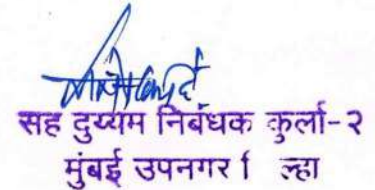 सह दुय्यम निबंधक कुर्ला-२
मुंबई उपनगर